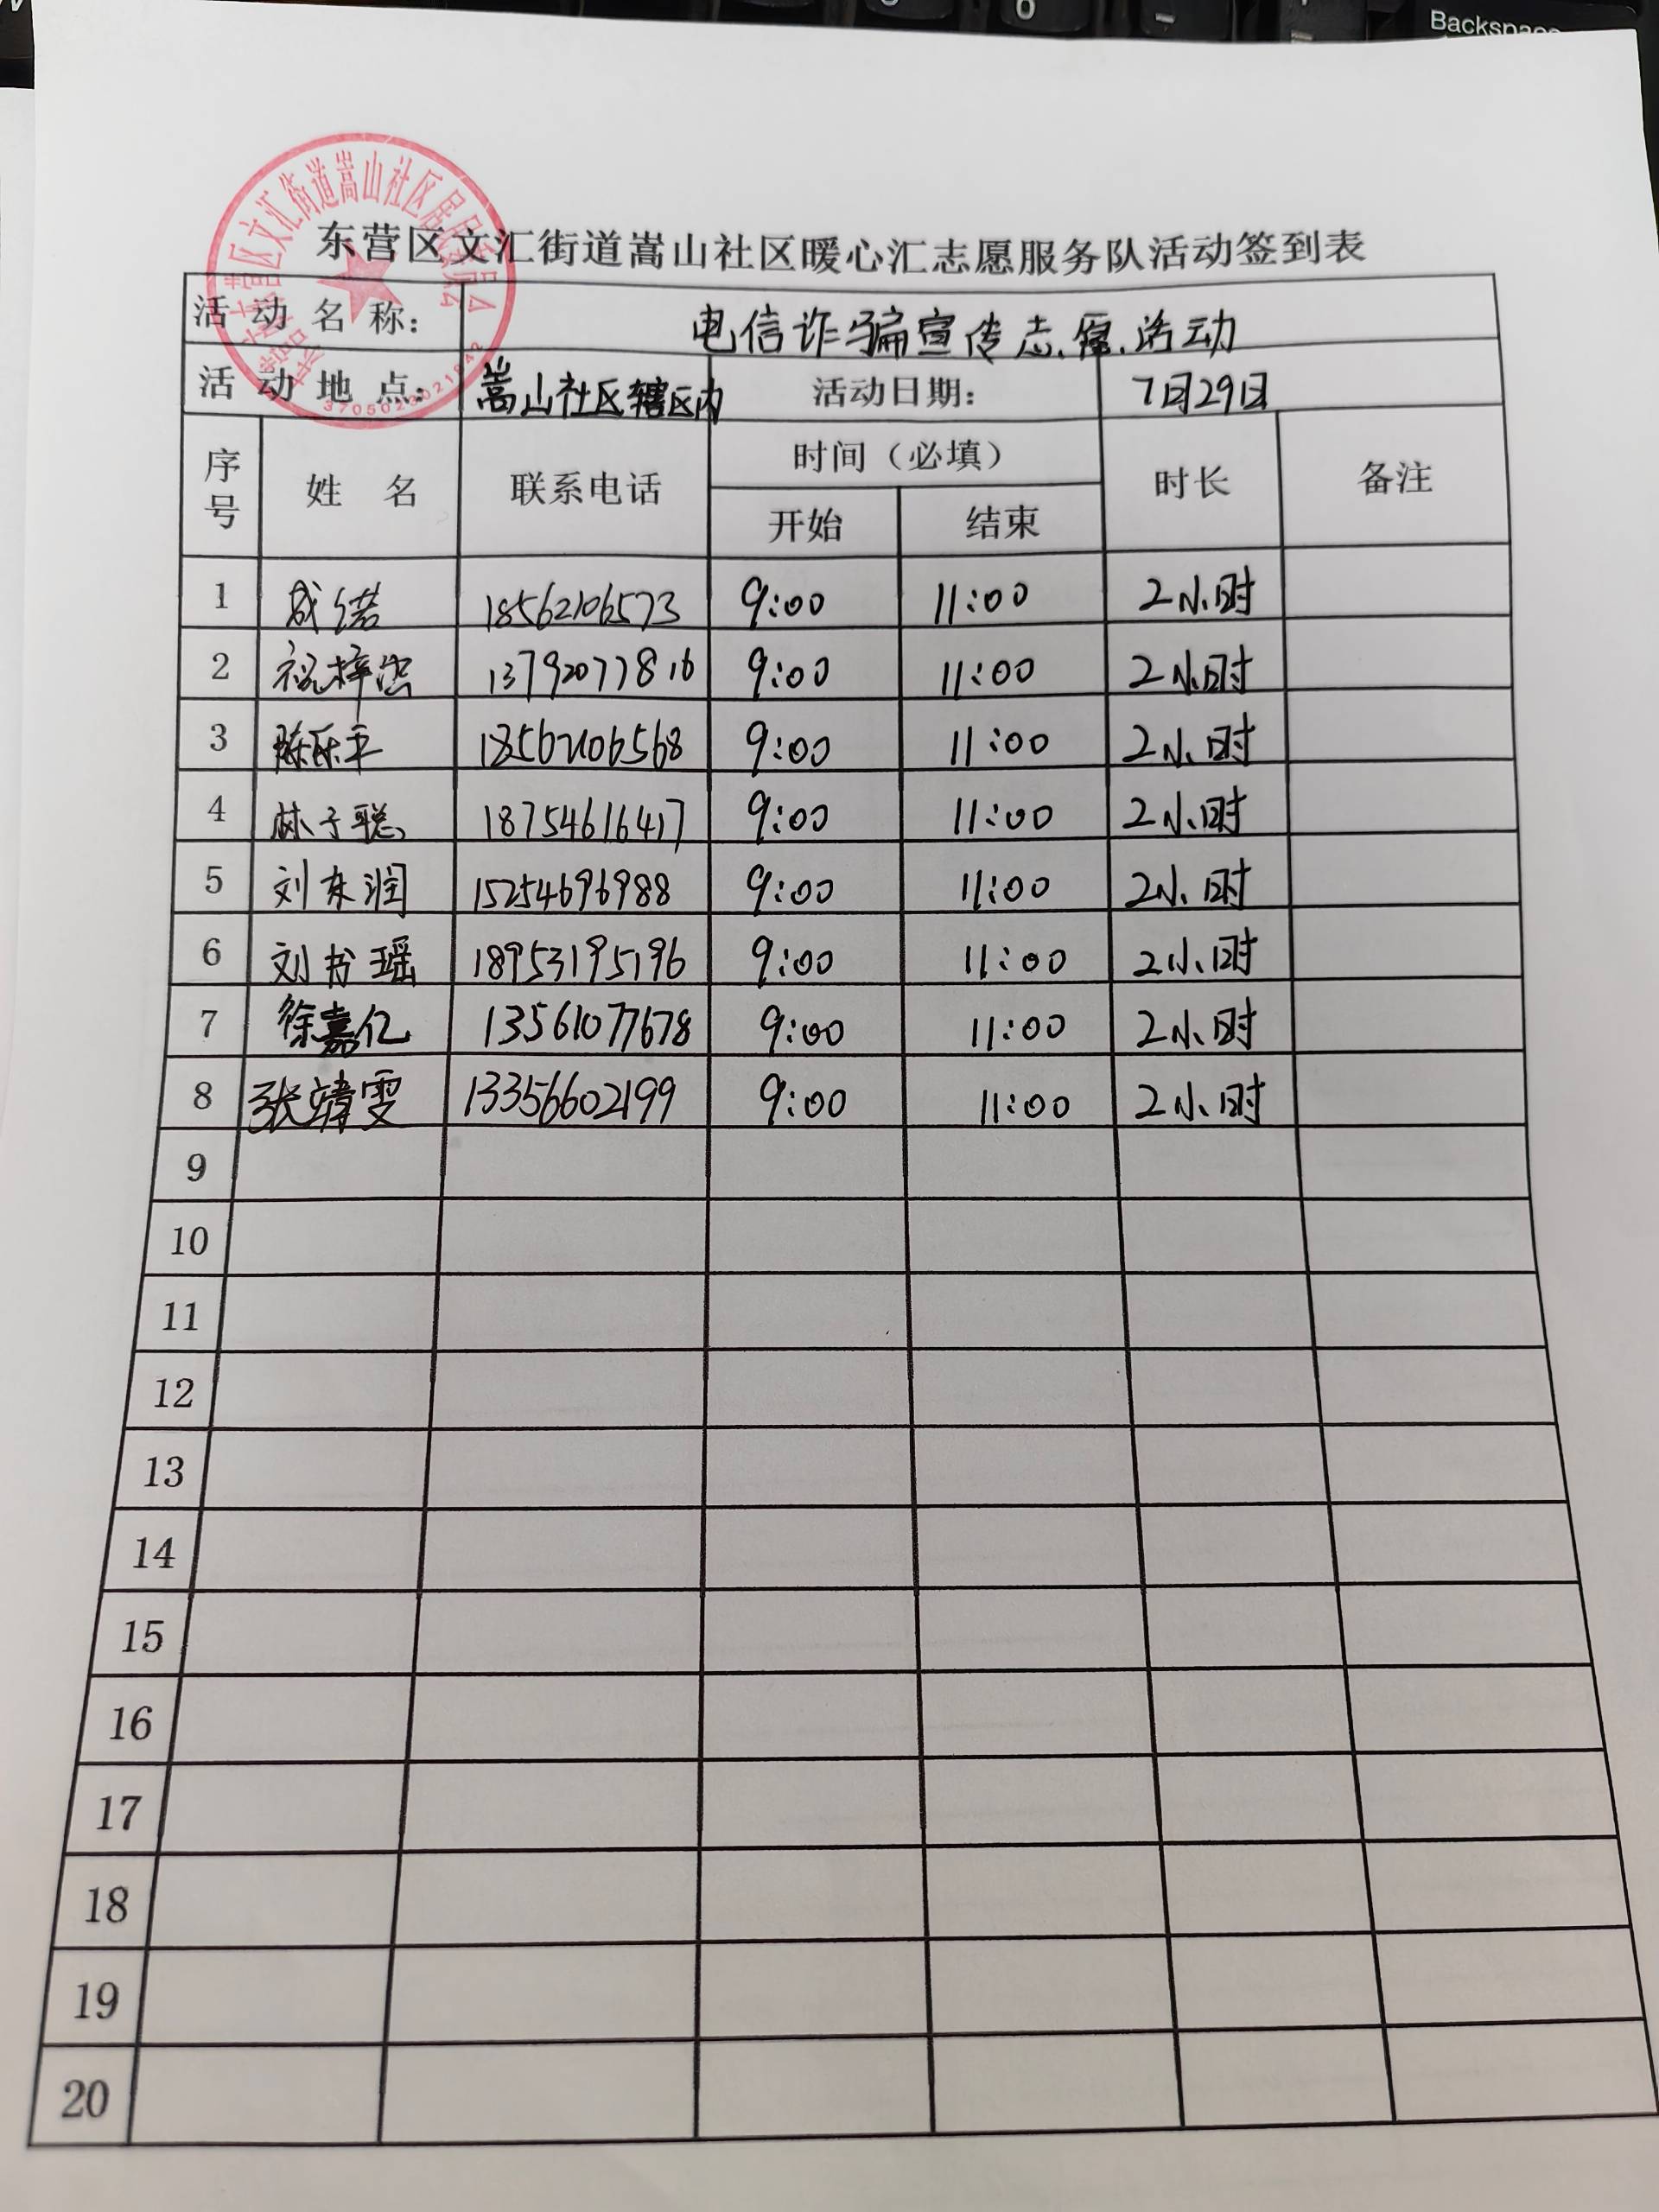 Backspace
东营区文汇街道嵩山社区暖心汇志愿服务队活动签到表
活动名称： 电信诈骗宣传志愿活动
活动地点： 嵩山社区辖区内 活动日期： 7月29日
序号 姓名 联系电话 时间（必填） 时长 备注
开始 结束
1 成诺 18562106573 9:00 11:00 2小时
2 祝梓忠 13792077816 9:00 11:00 2小时
3 陈乐平 18562106568 9:00 11:00 2小时
4 林子聪 18754616417 9:00 11:00 2小时
5 刘东润 15254696988 9:00 11:00 2小时
6 刘书瑶 18953195196 9:00 11:00 2小时
7 徐嘉亿 13561077678 9:00 11:00 2小时
8 张靖雯 13356602199 9:00 11:00 2小时
9
10
11
12
13
14
15
16
17
18
19
20